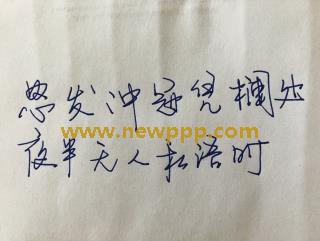 怒发冲冠凭欄处
www.newppp.com
夜半无人私语时